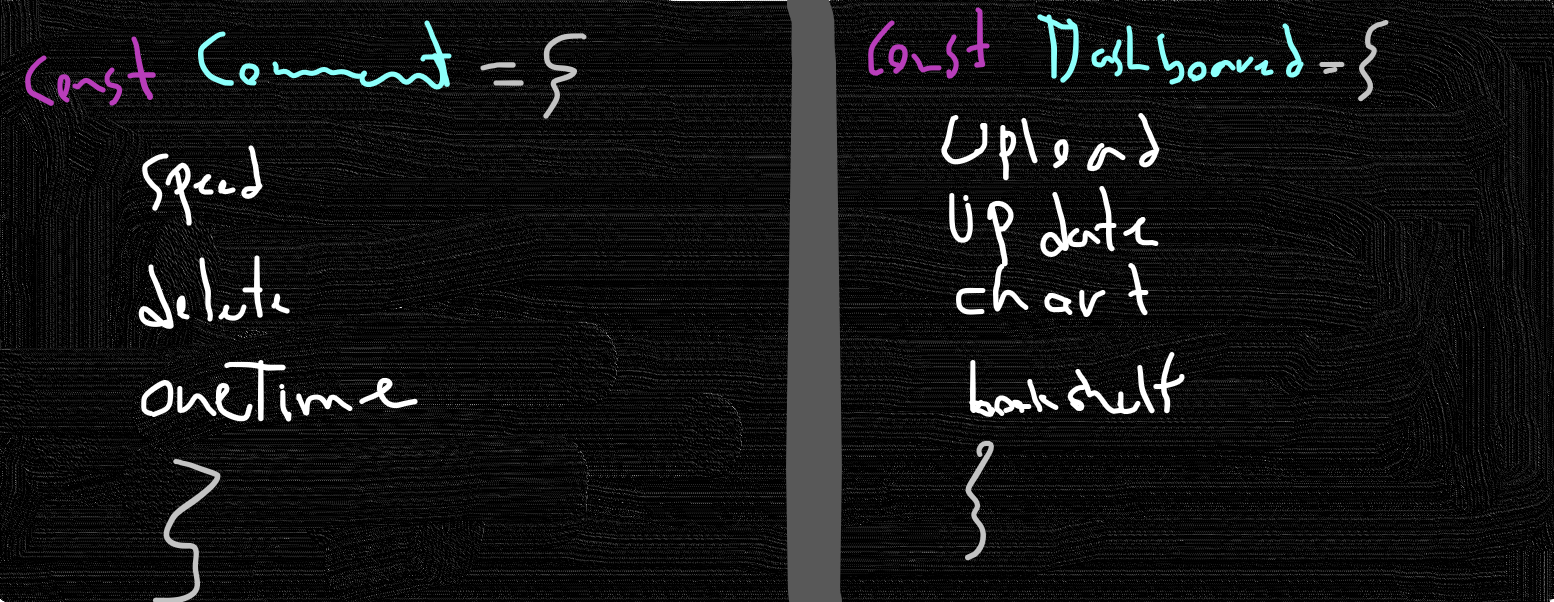 Const Comment = {
Speed
delete
oneTime
}
Const Dashboared = {
Upload
Update
chart
bookshelf
}